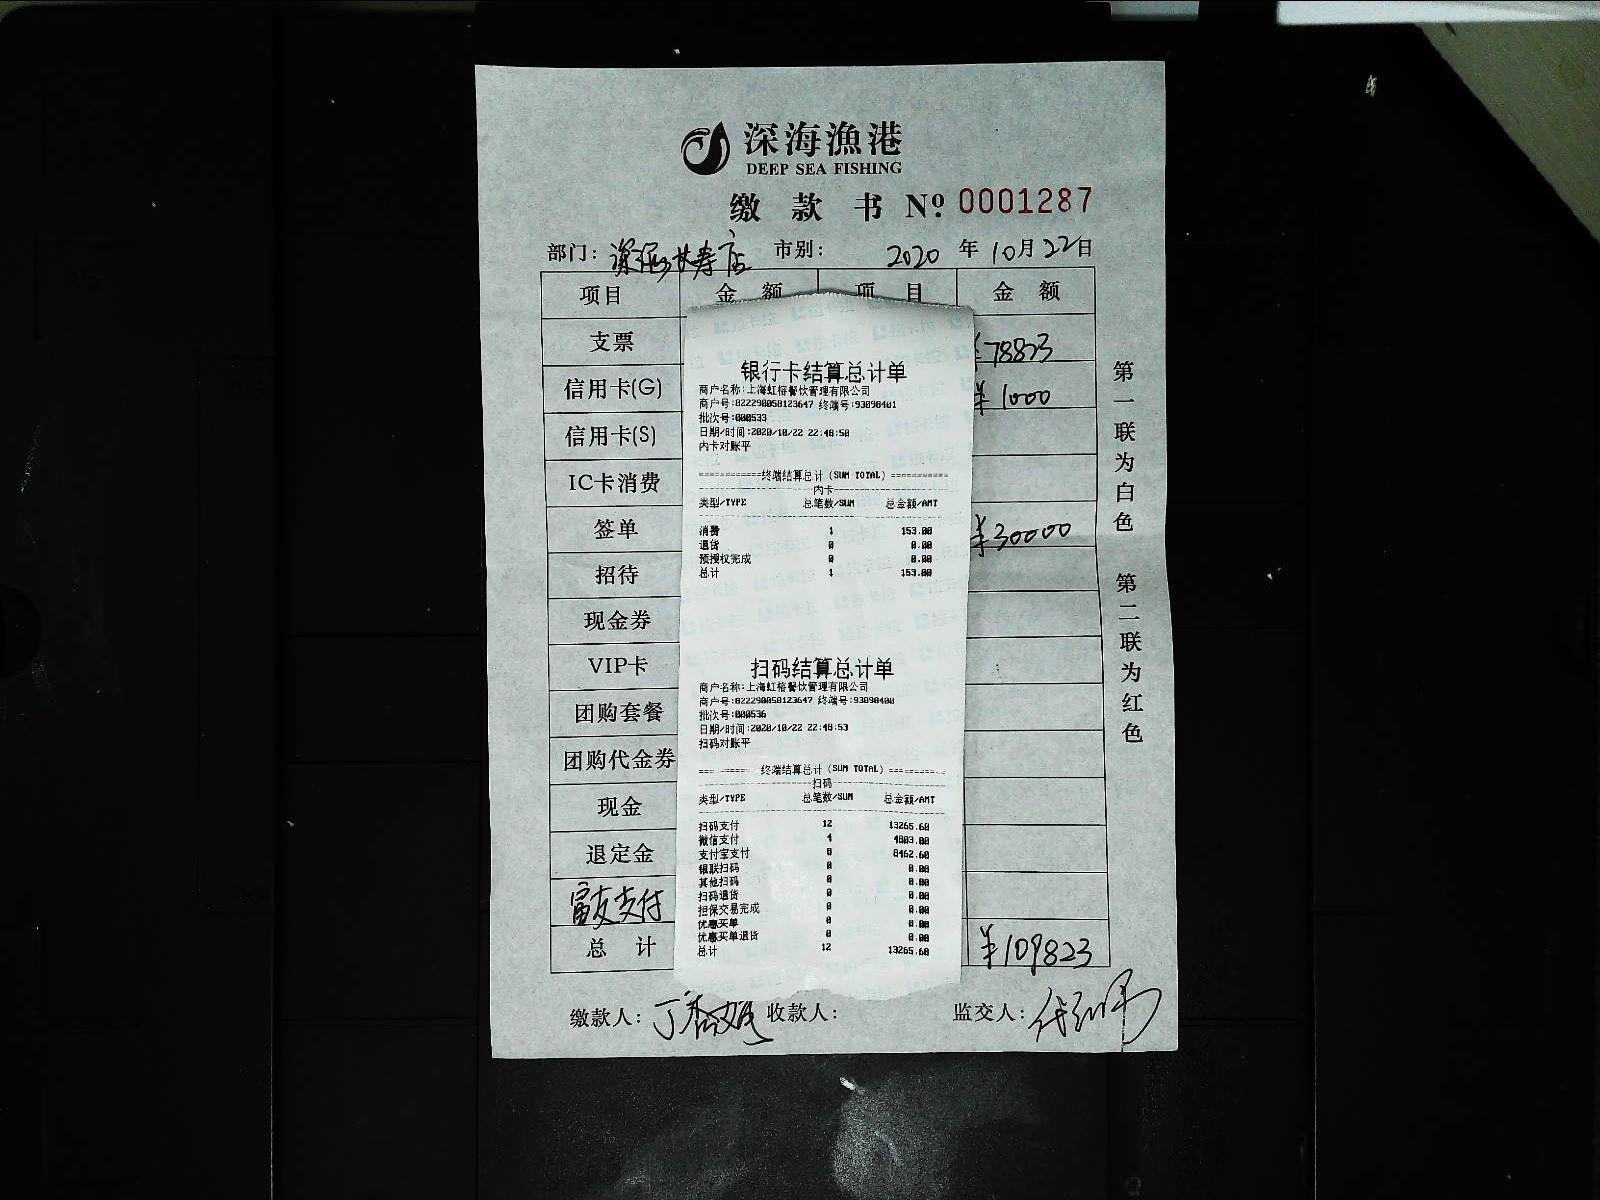 深海漁港
DEEP SEA FISHING
缴款书 Nº 0001287
部门: 深海长寿店 市别: 2020年10月22日
项目 金额 项目 金额
支票 ¥78823
信用卡(G) ¥1000
信用卡(S)
IC卡消费
签单 ¥30000
招待
现金券
VIP卡
团购套餐
团购代金券
现金
退定金
富友支付
总计 ¥109823
缴款人: 丁 收款人: 监交人:
第一联为白色 第二联为红色
银行卡结算总计单
商户名称:上海虹榕餐饮管理有限公司
商户号:822290058123647 终端号:93098401
批次号:000533
日期/时间:2020/10/22 22:48:50
内卡对账平
============终端结算总计(SUM TOTAL)============
内卡
类型/TYPE 总笔数/SUM 总金额/AMT
消费 1 153.00
退货 0 0.00
预授权完成 0 0.00
总计 1 153.00
扫码结算总计单
商户名称:上海虹榕餐饮管理有限公司
商户号:822290058123647 终端号:93098400
批次号:000536
日期/时间:2020/10/22 22:48:53
扫码对账平
============终端结算总计(SUM TOTAL)============
扫码
类型/TYPE 总笔数/SUM 总金额/AMT
扫码支付 12 13265.60
微信支付 4 4803.00
支付宝支付 8 8462.60
银联扫码 0 0.00
其他扫码 0 0.00
扫码退货 0 0.00
担保交易完成 0 0.00
优惠买单 0 0.00
优惠买单退货 0 0.00
总计 12 13265.60